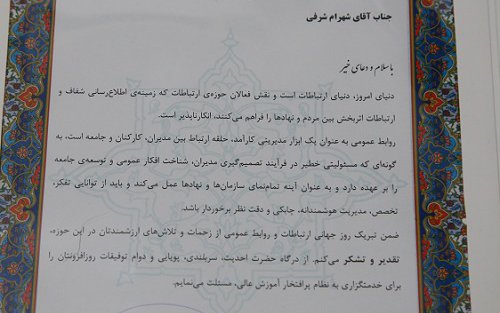 جناب آقای شهرام شرفی
با سلام و دعای خیر
دنیای امروز، دنیای ارتباطات است و نقش فعالان حوزه‌ی ارتباطات که زمینه‌ی اطلاع‌رسانی شفاف و
ارتباطات اثربخش بین مردم و نهادها را فراهم می‌کنند، انکارناپذیر است.
روابط عمومی به عنوان یک ابزار مدیریتی کارآمد، حلقه ارتباط بین مدیران، کارکنان و جامعه است، به
گونه‌ای که مسئولیتی خطیر در فرآیند تصمیم‌گیری مدیران، شناخت افکار عمومی و توسعه‌ی جامعه
را بر عهده دارد و به عنوان آینه تمام‌نمای سازمان‌ها و نهادها عمل می‌کند و باید از توانایی تفکر،
تخصص، مدیریت هوشمندانه، چابکی و دقت نظر برخوردار باشد.
ضمن تبریک روز جهانی ارتباطات و روابط عمومی از زحمات و تلاش‌های ارزشمندتان در این حوزه،
تقدیر و تشکر می‌کنم. از درگاه حضرت احدیت، سربلندی، پویایی و دوام توفیقات روزافزونتان را
برای خدمتگزاری به نظام پرافتخار آموزش عالی، مسئلت می‌نمایم.